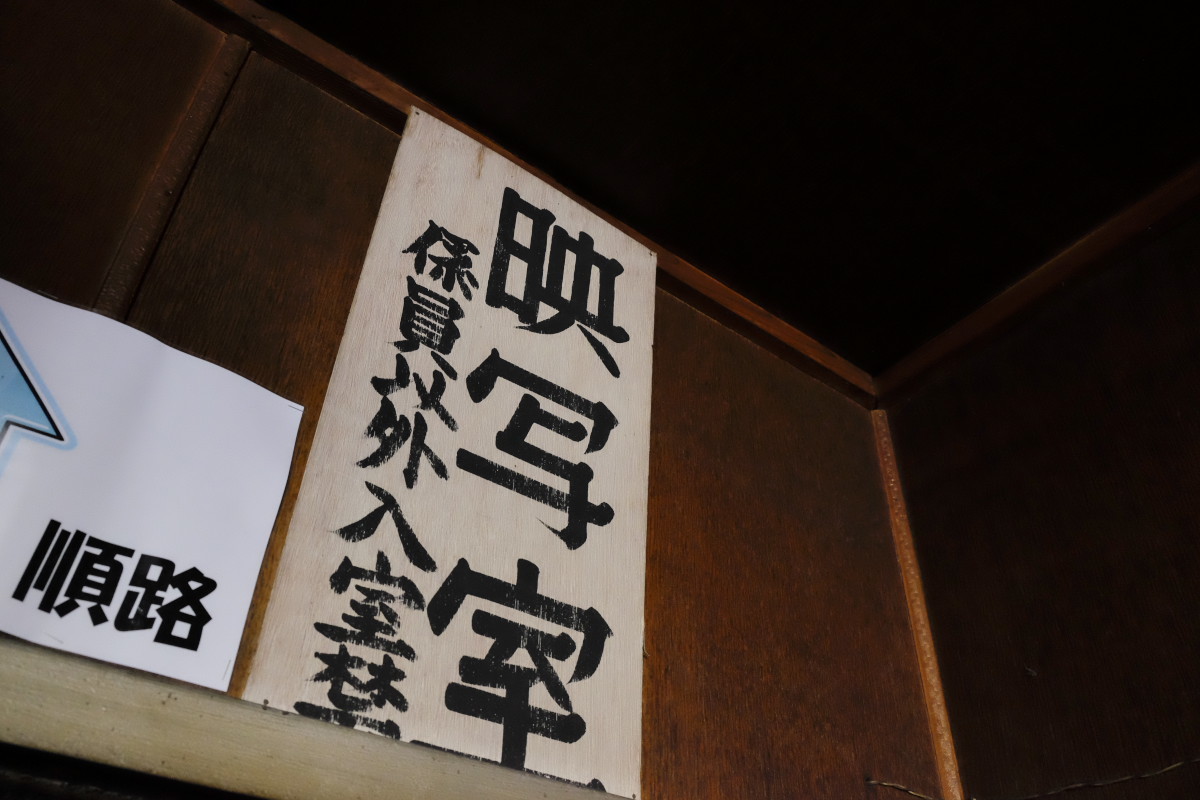 映写室
係員以外入室禁
順路